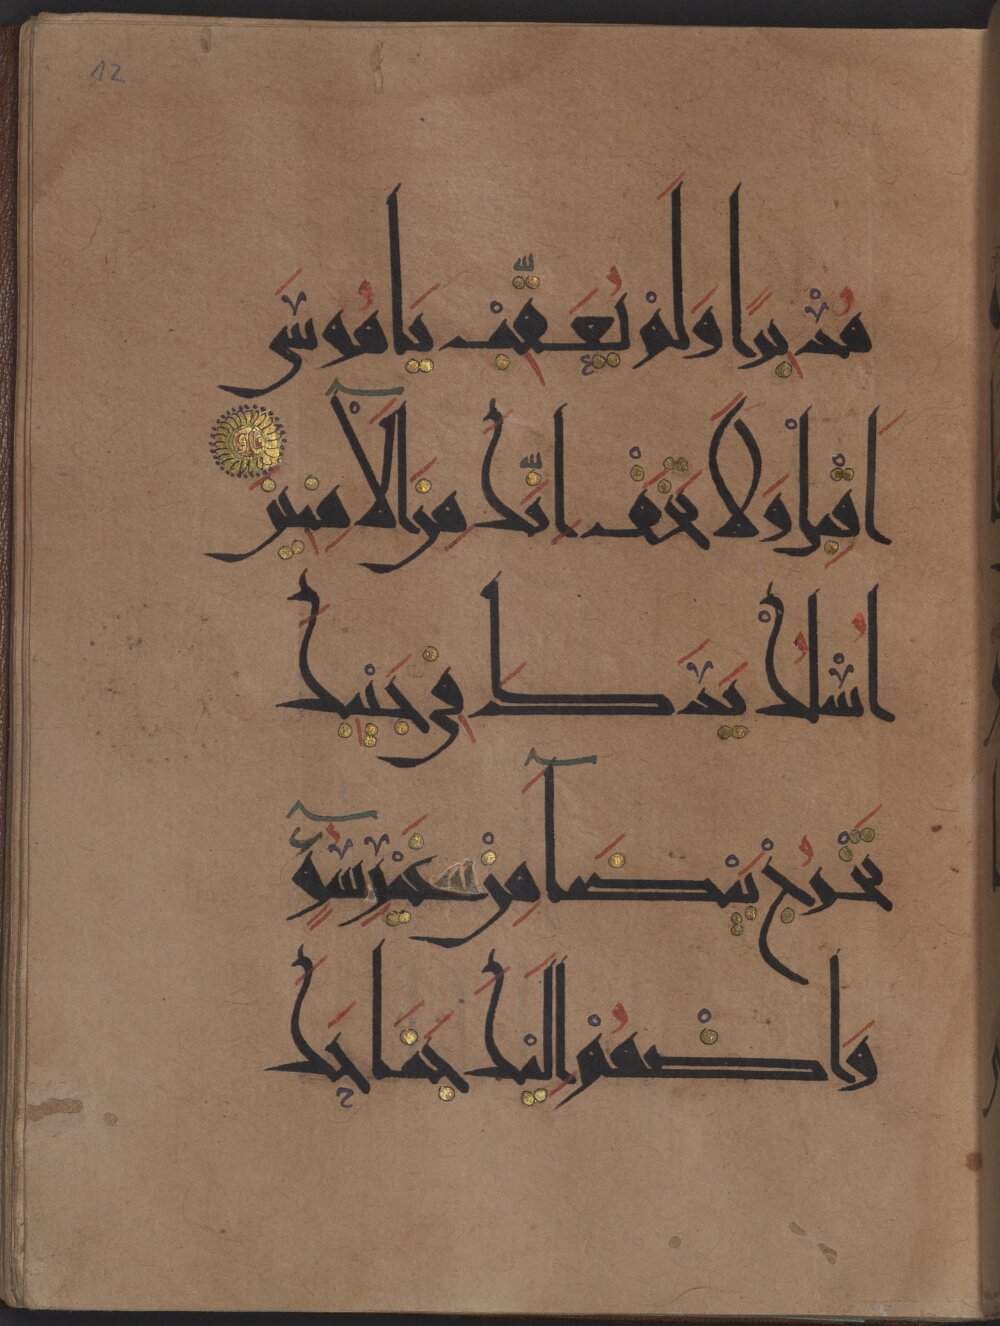 12
مُدْبِرًا وَلَمْ يُعَقِّبْ يَا مُوسَى
اقْبِلْ وَلَا تَخَفْ اِنَّكَ مِنَ الْآمِنِينَ
اسْلُكْ يَدَكَ فِي جَيْبِكَ
تَخْرُجْ بَيْضَآ مِنْ غَيْرِ سُوٓءٍ
وَاضْمُمْ اِلَيْكَ جَنَاحَكَ